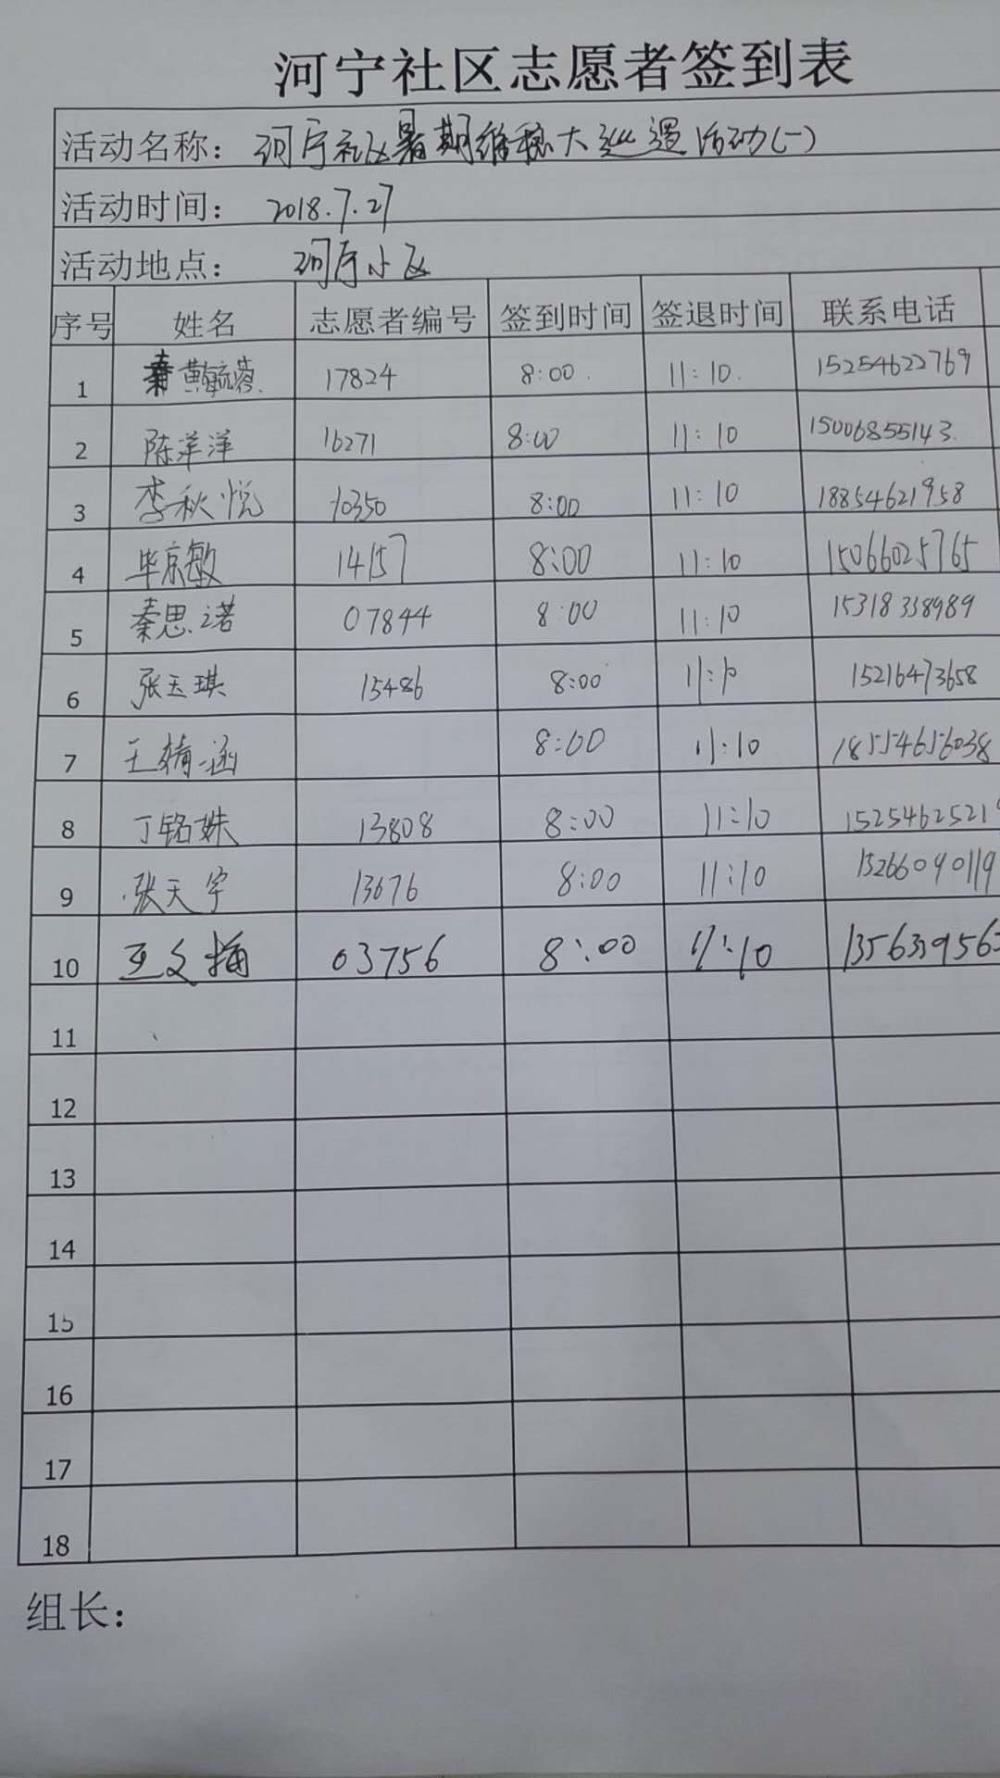 河宁社区志愿者签到表
活动名称： 河宁社区暑期维稳大巡逻活动(一)
活动时间： 2018.7.27
活动地点： 河宁小区
序号 姓名 志愿者编号 签到时间 签退时间 联系电话
1 黄毓蓉 17824 8:00 11:10 15254622769
2 陈洋洋 16271 8:00 11:10 15006855143
3 李秋悦 10350 8:00 11:10 18854621958
4 毕京敏 14157 8:00 11:10 15066025765
5 秦思诺 07844 8:00 11:10 15318338989
6 张玉琪 15486 8:00 11:10 15216473658
7 王精涵 8:00 11:10 18554656038
8 丁铭姝 13808 8:00 11:10 1525462521
9 张天宇 13676 8:00 11:10 13266090119
10 03756 8:00 11:10
11
12
13
14
15
16
17
18
组长：